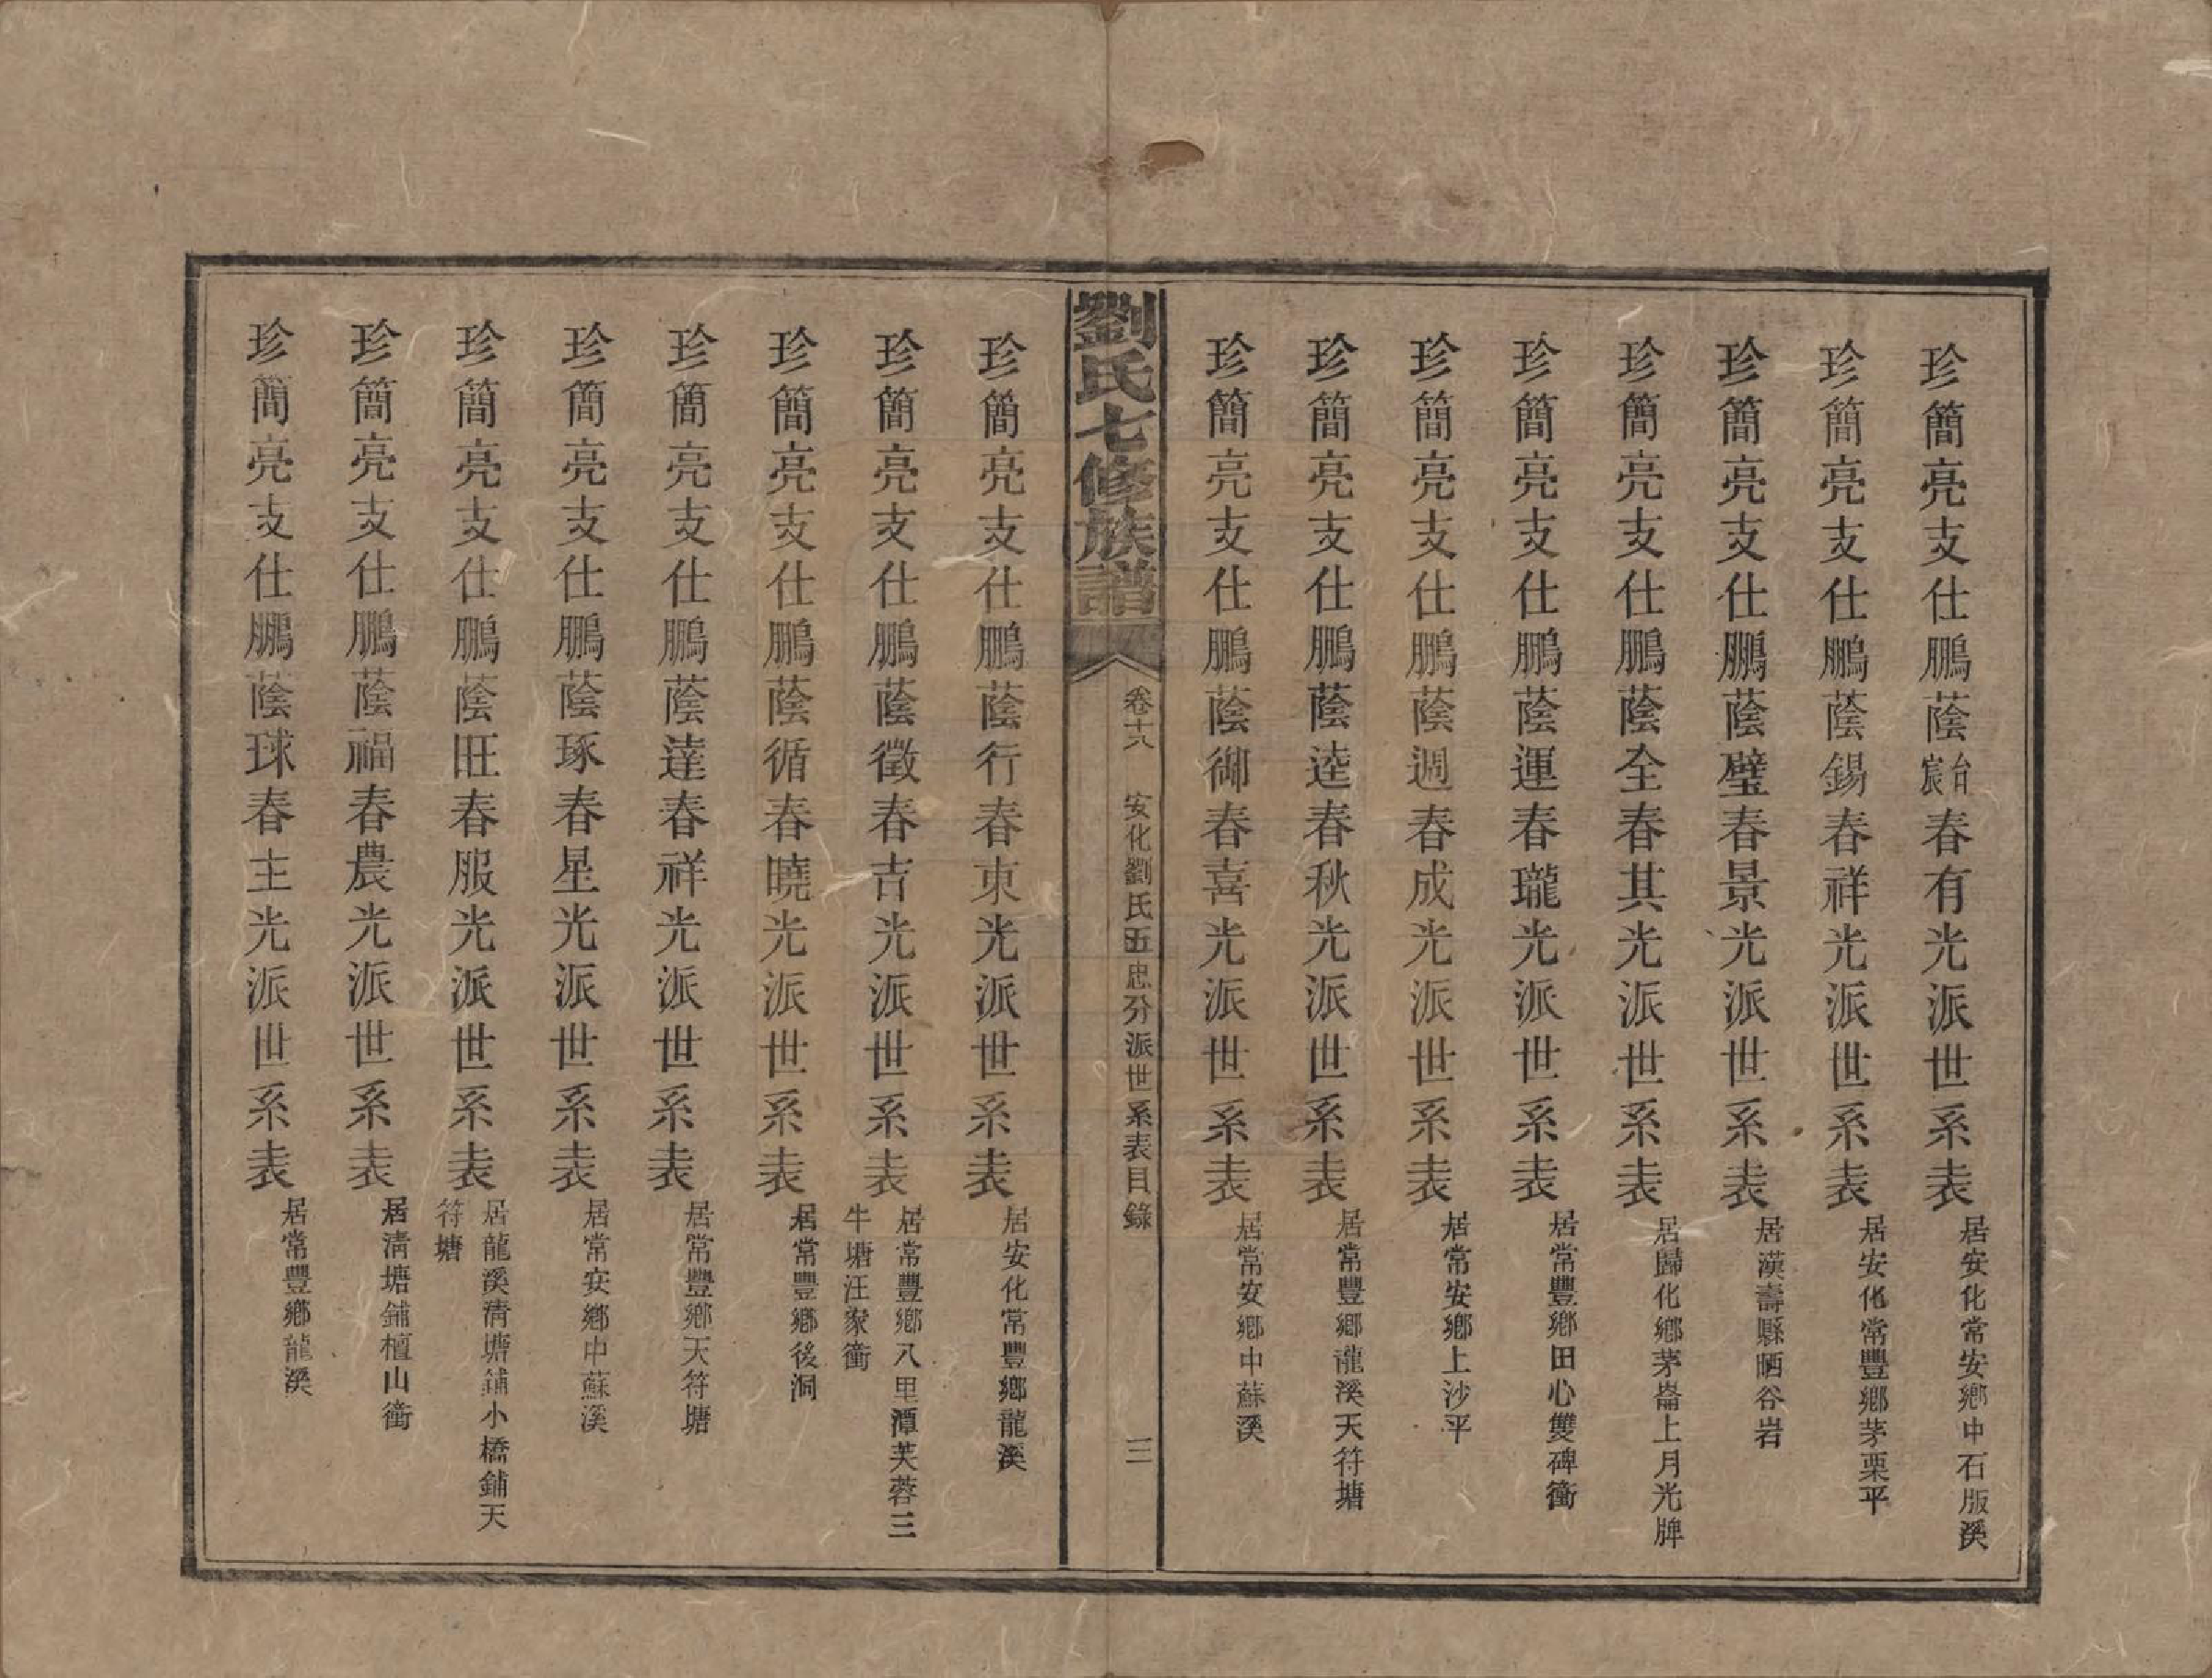 珍簡亮支仕鵬蔭台宸春有光派世系表 居安化常安鄉中石版溪
珍簡亮支仕鵬蔭錫春祥光派世系表 居安化常豐鄉茅栗平
珍簡亮支仕鵬蔭璧春景光派世系表 居漢壽縣晒谷岩
珍簡亮支仕鵬蔭全春其光派世系表 居歸化鄉茅崙上月光牌
珍簡亮支仕鵬蔭運春瓏光派世系表 居常豐鄉田心雙碑衝
珍簡亮支仕鵬蔭週春成光派世系表 居常安鄉上沙平
珍簡亮支仕鵬蔭逵春秋光派世系表 居常豐鄉龍溪天符塘
珍簡亮支仕鵬蔭御春喜光派世系表 居常安鄉中蘇溪
劉氏七修族譜 卷十六 安化劉氏五忠分派世系表目錄 三
珍簡亮支仕鵬蔭行春東光派世系表 居安化常豐鄉龍溪
珍簡亮支仕鵬蔭徵春吉光派世系表 居常豐鄉八里潭芙蓉三
牛塘汪家衝
珍簡亮支仕鵬蔭循春曉光派世系表 居常豐鄉後洞
珍簡亮支仕鵬蔭達春祥光派世系表 居常豐鄉天符塘
珍簡亮支仕鵬蔭琢春星光派世系表 居常安鄉中蘇溪
珍簡亮支仕鵬蔭旺春服光派世系表 居龍溪清塘鋪小橋鋪天
符塘
珍簡亮支仕鵬蔭福春農光派世系表 居清塘鋪檀山衝
珍簡亮支仕鵬蔭球春主光派世系表 居常豐鄉龍溪